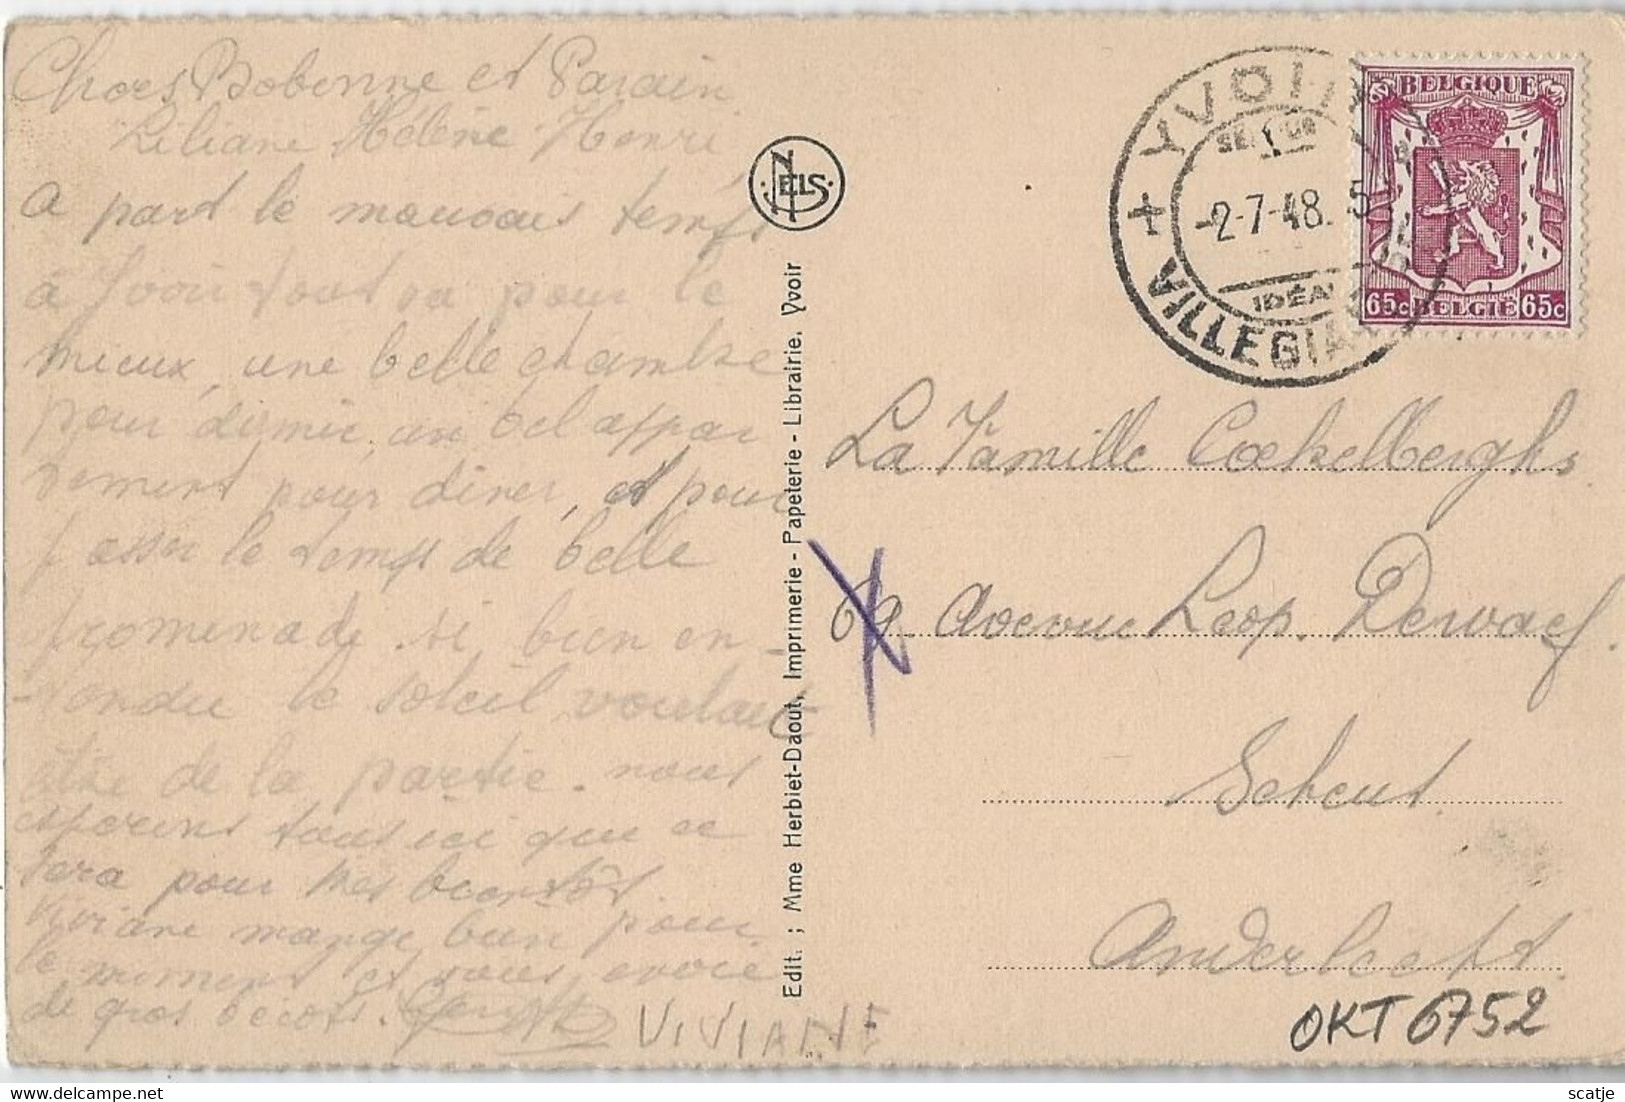 Chers Bobonne et Parain
Liliane Hélène Henri
a part le mauvais temps
à Yvoir tout va pour le
mieux, une belle chambre
pour dormir, un bel appar
tement pour diner, et pour
passer le temps de belle
promenade si bien en-
-tendu le soleil voulant
être de la partie. nous
esperons tous ici que ce
sera pour très bientôt
Viviane mange bien pour
le moment et vous envoie
de gros becots.
VIVIANE
NELS
Edit. ; Mme Herbiet-Daout, Imprimerie - Papeterie - Librairie. Yvoir
YVOIR
-2-7-48.
IDÉAL
VILLEGIA
BELGIQUE
65c BELGIE 65c
La Famille Coekelberghs
69 Avenue Leop. Dewaef.
Scheut
Anderlecht
OKT 6752
scatje